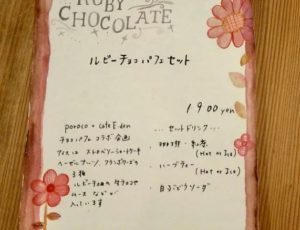 RUBY
CHOCOLATE
ルビーチョコパフェセット
1900yen
poroco × cafe E.den
チョコパフェ コラボ企画
アイスは ストロベリーショートケーキ
ヘーゼルナッツ、フランボワーズの
3種
ルビーチョコの 生チョコや
ムース などが
入っています
・・・セットドリンク・・・
・珈琲・紅茶
(Hot or Ice)
・ハーブティー
(Hot or Ice)
・白ぶどうソーダ